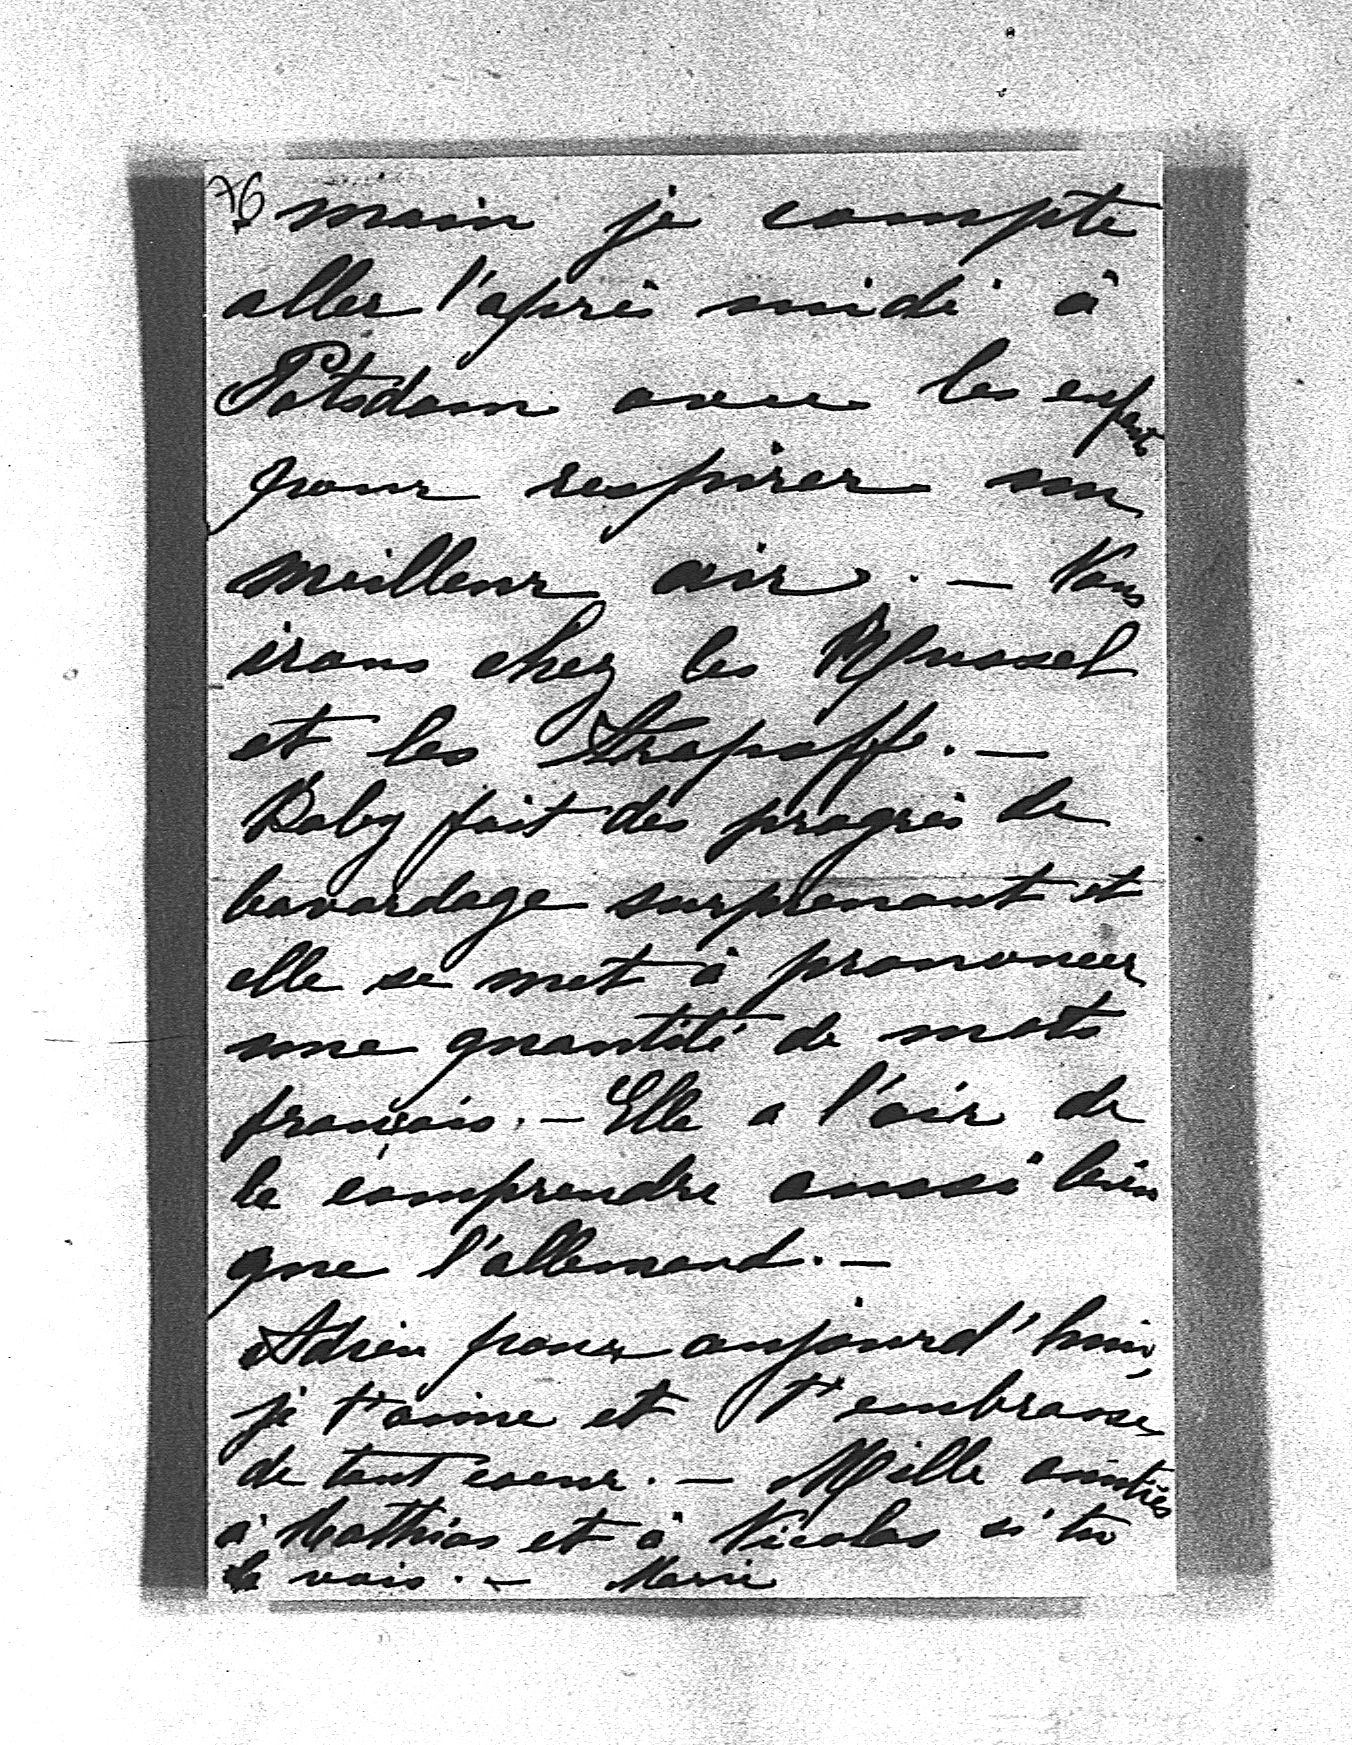 76
main je compte
aller l'après midi à
Potsdam avec les enfants
pour respirer un
meilleur air. — Nous
irons chez les
et les Strapoff. —
Baby fait des progrès de
bavardage surprenant et
elle se met à prononcer
une quantité de mots
français. — Elle a l'air de
le comprendre aussi bien
que l'allemand. —
Adieu pour aujourd'hui,
je t'aime et t'embrasse
de tout coeur. — Mille amitiés
à Mathias et à Nicolas si tu
le vois. — Marie